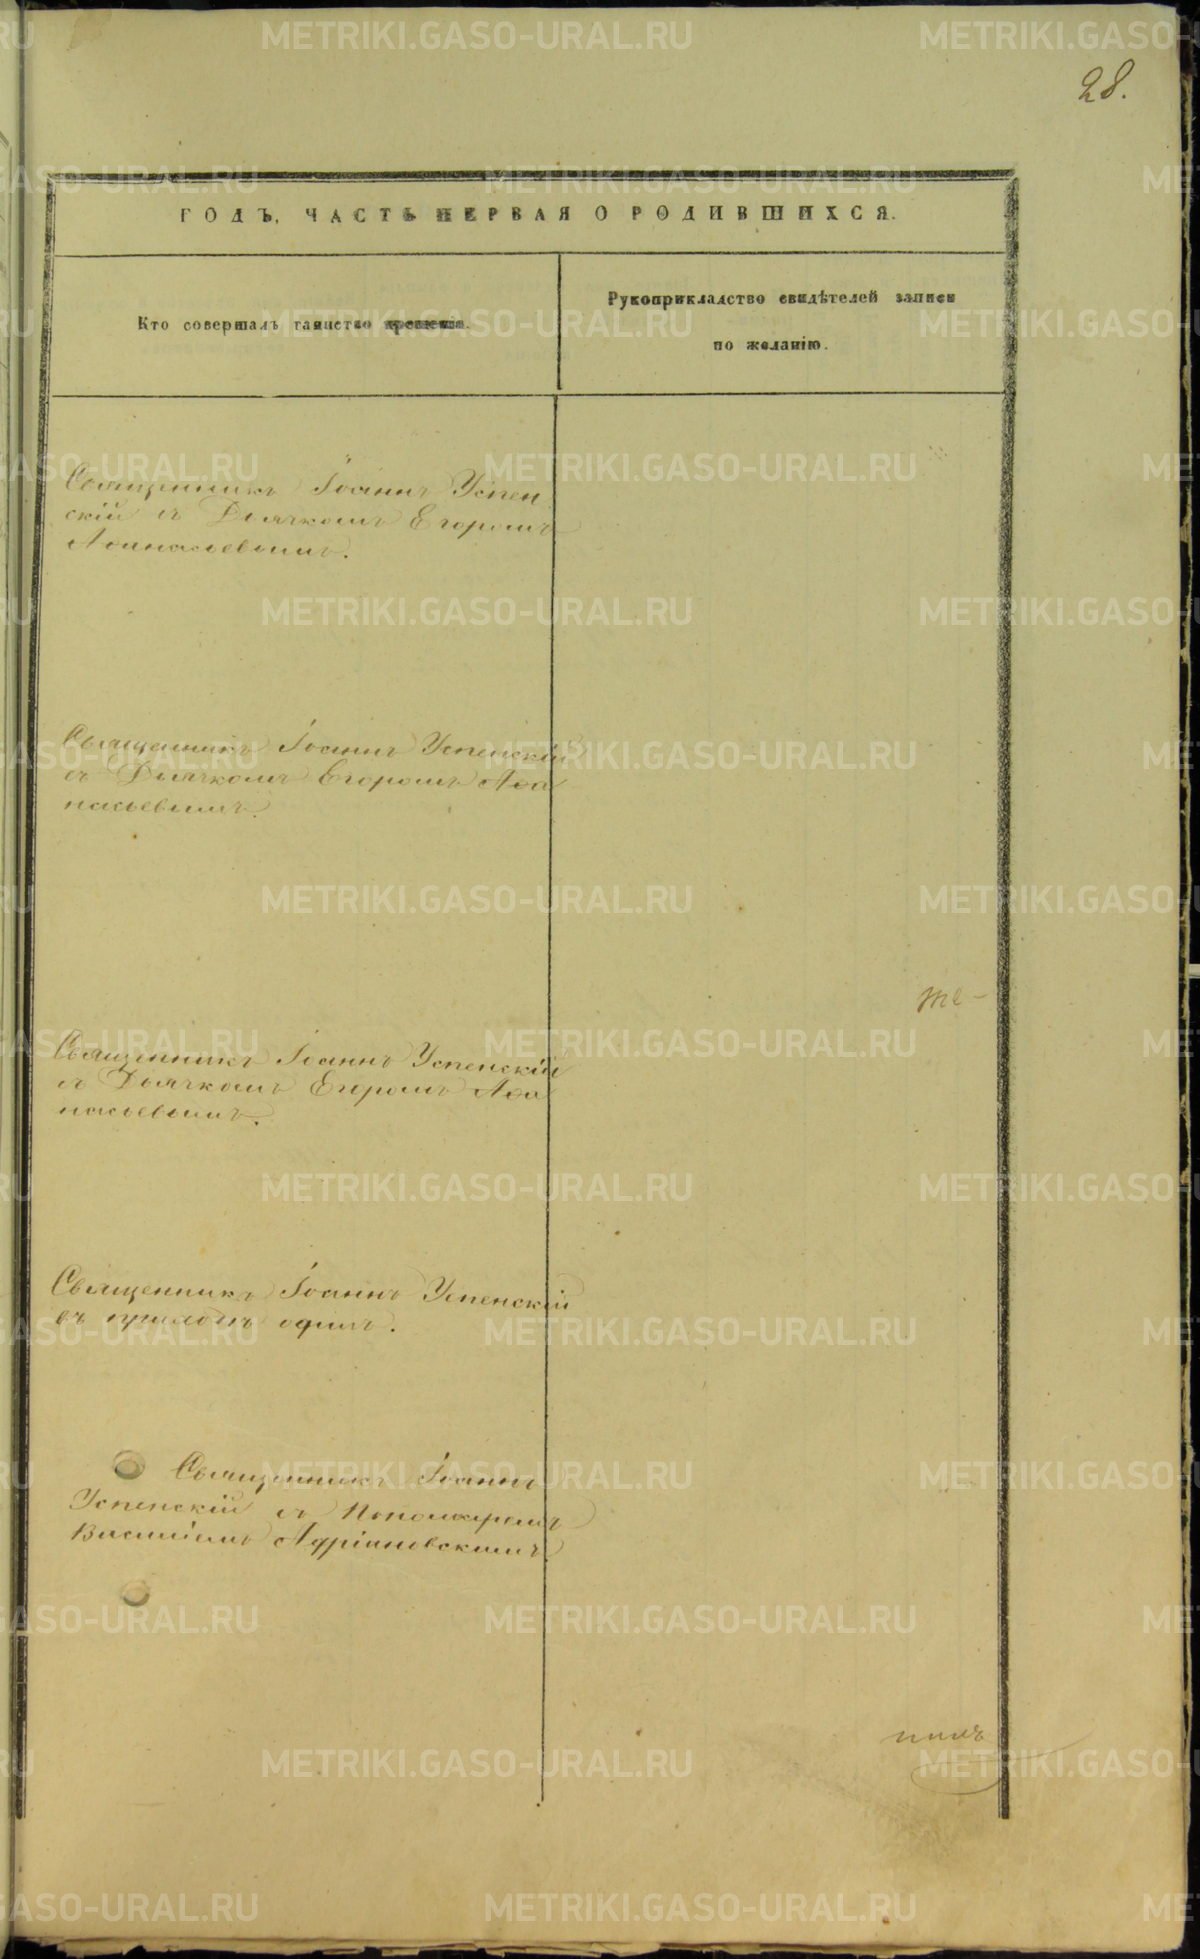 28.
ГОДЪ, ЧАСТЬ ПЕРВАЯ О РОДИВШИХСЯ.
Кто совершалъ таинство крещенія.
Рукоприкладство свидѣтелей записи
по желанію.
Священникъ Іоаннъ Успен
скій съ Дьячкомъ Егоромъ
Аѳанасьевымъ.
Священникъ Іоаннъ Успенскій
съ Дьячкомъ Егоромъ Аѳа
насьевымъ.
те-
Священникъ Іоаннъ Успенскій
съ Дьячкомъ Егоромъ Аѳа
насьевымъ.
Священникъ Іоаннъ Успенскій
въ приходѣ одинъ.
Священникъ Іоаннъ
Успенскій съ Пономаремъ
Василіемъ Адріановскимъ
METRIKI.GASO-URAL.RU